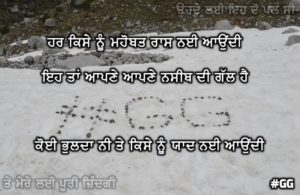 ਉਹਦੇ ਲਈ ਇਹ ਦੋ ਪਲ ਸੀ
ਹਰ ਕਿਸੇ ਨੂੰ ਮਹੋਬਤ ਰਾਸ ਨਈ ਆਉਂਦੀ
ਇਹ ਤਾਂ ਆਪਣੇ ਆਪਣੇ ਨਸੀਬ ਦੀ ਗੱਲ ਹੈ
#GG
ਕੋਈ ਭੁਲਦਾ ਨੀ ਤੇ ਕਿਸੇ ਨੂੰ ਯਾਦ ਨਈ ਆਉਂਦੀ
ਤੇ ਮੇਰੇ ਲਈ ਪੂਰੀ ਜ਼ਿੰਦਗੀ
#GG